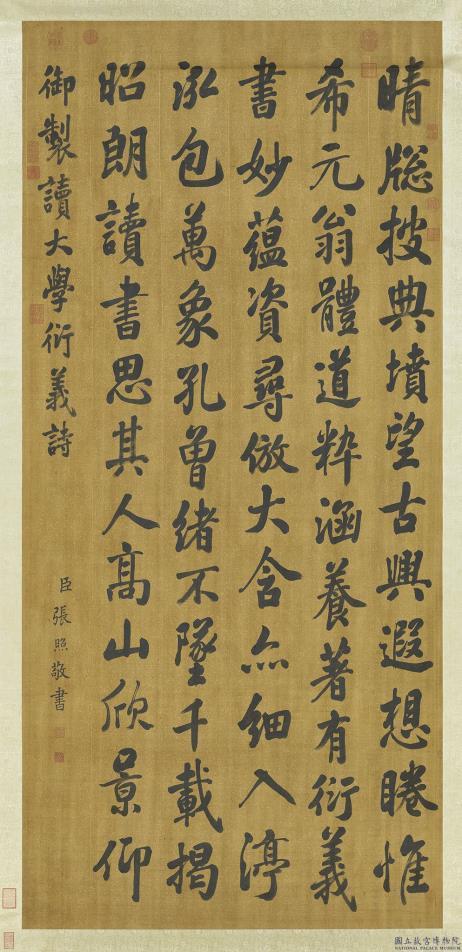 晴牕披典墳望古興遐想睠惟
希元翁體道粹涵養著有衍義
書妙蘊資尋倣大含亦細入渟
泓包萬象孔曾緒不墜千載揭
昭朗讀書思其人高山欣景仰
御製讀大學衍義詩
臣張照敬書
國立故宮博物院
NATIONAL PALACE MUSEUM